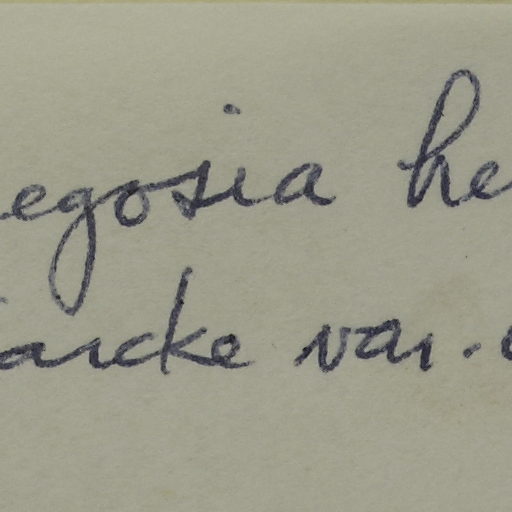 egosia he
arcke var.